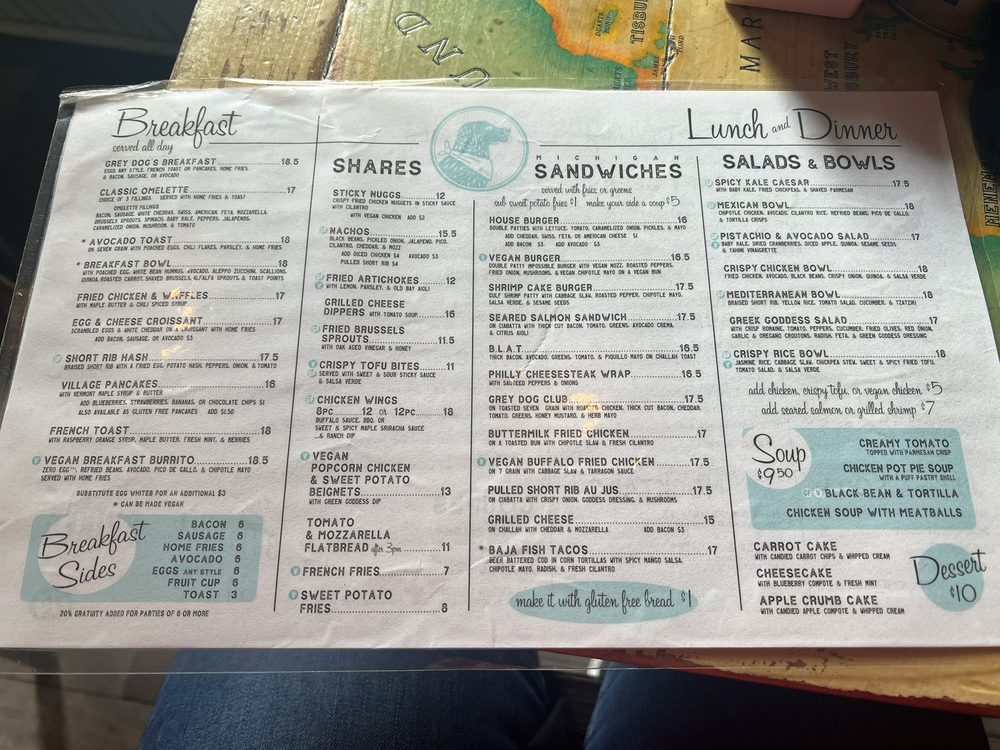 UND
TISBURY
MAR
WEST
Breakfast
served all day
GREY DOG'S BREAKFAST 18.5
EGGS ANY STYLE, FRENCH TOAST OR PANCAKES, HOME FRIES,
& BACON, SAUSAGE, OR AVOCADO
CLASSIC OMELETTE 17
CHOICE OF 3 FILLINGS SERVED WITH HOME FRIES & TOAST
OMELETTE FILLINGS
BACON, SAUSAGE, WHITE CHEDDAR, SWISS, AMERICAN, FETA, MOZZARELLA,
BRUSSELS SPROUTS, SPINACH, BABY KALE, PEPPERS, JALAPENOS,
CARAMELIZED ONION, MUSHROOM, & TOMATO
* AVOCADO TOAST 18
ON SEVEN GRAIN WITH POACHED EGGS, CHILI FLAKES, PARSLEY, & HOME FRIES
* BREAKFAST BOWL 18
WITH POACHED EGG, WHITE BEAN HUMMUS, AVOCADO, ALEPPO ZUCCHINI, SCALLIONS,
QUINOA, ROASTED CARROT, SHAVED BRUSSELS, ALFALFA SPROUTS, & TOAST POINTS
FRIED CHICKEN & WAFFLES 17
WITH MAPLE BUTTER & CHILI SPICED SYRUP
EGG & CHEESE CROISSANT 17
SCRAMBLED EGGS & WHITE CHEDDAR ON A CROISSANT WITH HOME FRIES
ADD BACON, SAUSAGE, OR AVOCADO $3
SHORT RIB HASH 17.5
BRAISED SHORT RIB WITH A FRIED EGG, POTATO HASH, PEPPERS, ONION, & TOMATO
VILLAGE PANCAKES 16
WITH VERMONT MAPLE SYRUP & BUTTER
ADD BLUEBERRIES, STRAWBERRIES, BANANAS, OR CHOCOLATE CHIPS $1
ALSO AVAILABLE AS GLUTEN FREE PANCAKES ADD $1.50
FRENCH TOAST 18
WITH RASPBERRY ORANGE SYRUP, MAPLE BUTTER, FRESH MINT, & BERRIES
V VEGAN BREAKFAST BURRITO 18.5
ZERO EGG™, REFRIED BEANS, AVOCADO, PICO DE GALLO, & CHIPOTLE MAYO
SERVED WITH HOME FRIES
SUBSTITUTE EGG WHITES FOR AN ADDITIONAL $3
* CAN BE MADE VEGAN
Breakfast
Sides
BACON 6
SAUSAGE 6
HOME FRIES 6
AVOCADO 6
EGGS ANY STYLE 6
FRUIT CUP 6
TOAST 3
20% GRATUITY ADDED FOR PARTIES OF 6 OR MORE
SHARES
STICKY NUGGS 12
CRISPY FRIED CHICKEN NUGGETS IN STICKY SAUCE
WITH CILANTRO
WITH VEGAN CHICKEN ADD $2
NACHOS 15.5
BLACK BEANS, PICKLED ONION, JALAPENO, PICO,
CILANTRO, CHEDDAR, & MOZZ
ADD DICED CHICKEN $4 AVOCADO $3
PULLED SHORT RIB $4
FRIED ARTICHOKES 12
WITH LEMON, PARSLEY, & OLD BAY AIOLI
GRILLED CHEESE
DIPPERS WITH TOMATO SOUP 16
FRIED BRUSSELS
SPROUTS 11.5
WITH OAK AGED VINEGAR & HONEY
CRISPY TOFU BITES 11
SERVED WITH SWEET & SOUR STICKY SAUCE
& SALSA VERDE
CHICKEN WINGS
8PC. 12 OR 12PC. 18
BUFFALO SAUCE, BBQ, OR
SWEET & SPICY MAPLE SRIRACHA SAUCE
...& RANCH DIP
V VEGAN
POPCORN CHICKEN
& SWEET POTATO
BEIGNETS 13
WITH GREEN GODDESS DIP
TOMATO
& MOZZARELLA
FLATBREAD after 3pm 11
V FRENCH FRIES 7
V SWEET POTATO
FRIES 8
MICHIGAN
SANDWICHES
served with fries or greens
sub sweet potato fries $1 make your side a soup $5
HOUSE BURGER 16
DOUBLE PATTIES WITH LETTUCE, TOMATO, CARAMELIZED ONION, PICKLES, & MAYO
ADD CHEDDAR, SWISS, FETA, OR AMERICAN CHEESE $1
ADD BACON $3 ADD AVOCADO $3
V VEGAN BURGER 16.5
DOUBLE PATTY IMPOSSIBLE BURGER WITH VEGAN MOZZ, ROASTED PEPPERS,
FRIED ONION, MUSHROOMS, & VEGAN CHIPOTLE MAYO ON A VEGAN BUN
SHRIMP CAKE BURGER 17.5
GULF SHRIMP PATTY WITH CABBAGE SLAW, ROASTED PEPPER, CHIPOTLE MAYO,
SALSA VERDE, & SESAME SEEDS
SEARED SALMON SANDWICH 17.5
ON CIABATTA WITH THICK CUT BACON, TOMATO, GREENS, AVOCADO CREMA,
& CITRUS AIOLI
B.L.A.T. 16.5
THICK BACON, AVOCADO, GREENS, TOMATO, & PIQUILLO MAYO ON CHALLAH TOAST
PHILLY CHEESESTEAK WRAP 16.5
WITH SAUTEED PEPPERS & ONIONS
GREY DOG CLUB 17.5
ON TOASTED SEVEN GRAIN WITH ROASTED CHICKEN, THICK CUT BACON, CHEDDAR,
TOMATO, GREENS, HONEY MUSTARD, & HERB MAYO
BUTTERMILK FRIED CHICKEN 17
ON A TOASTED BUN WITH CHIPOTLE SLAW & FRESH CILANTRO
V VEGAN BUFFALO FRIED CHICKEN 17.5
ON 7 GRAIN WITH CABBAGE SLAW & TARRAGON SAUCE
PULLED SHORT RIB AU JUS 17.5
ON CIABATTA WITH CRISPY ONION, GODDESS DRESSING, & MUSHROOMS
GRILLED CHEESE 15
ON CHALLAH WITH CHEDDAR & MOZZARELLA ADD BACON $3
* BAJA FISH TACOS 17
BEER BATTERED COD IN CORN TORTILLAS WITH SPICY MANGO SALSA,
CHIPOTLE MAYO, RADISH, & FRESH CILANTRO
make it with gluten free bread $1
Lunch and Dinner
SALADS & BOWLS
SPICY KALE CAESAR 17.5
WITH BABY KALE, FRIED CHICKPEAS, & SHAVED PARMESAN
MEXICAN BOWL 18
CHIPOTLE CHICKEN, AVOCADO, CILANTRO RICE, REFRIED BEANS, PICO DE GALLO,
& TORTILLA CRISPS
PISTACHIO & AVOCADO SALAD 17
BABY KALE, DRIED CRANBERRIES, DICED APPLE, QUINOA, SESAME SEEDS
& TAHINI VINAIGRETTE
CRISPY CHICKEN BOWL 18
FRIED CHICKEN, AVOCADO, BLACK BEANS, CRISPY ONION, QUINOA, & SALSA VERDE
MEDITERRANEAN BOWL 18
BRAISED SHORT RIB, YELLOW RICE, TOMATO SALAD, CUCUMBER, & TZATZIKI
GREEK GODDESS SALAD 17
WITH CRISP ROMAINE, TOMATO, PEPPERS, CUCUMBER, FRIED OLIVES, RED ONION,
GARLIC & OREGANO CROUTONS, RADISH, FETA, & GREEN GODDESS DRESSING
CRISPY RICE BOWL 18
JASMINE RICE, CABBAGE SLAW, CHICKPEA STEW, SWEET & SPICY FRIED TOFU,
TOMATO SALAD, & SALSA VERDE
add chicken, crispy tofu, or vegan chicken $5
add seared salmon or grilled shrimp $7
Soup
$9.50
CREAMY TOMATO
TOPPED WITH PARMESAN CRISP
CHICKEN POT PIE SOUP
WITH A PUFF PASTRY SHELL
BLACK BEAN & TORTILLA
CHICKEN SOUP WITH MEATBALLS
CARROT CAKE
WITH CANDIED CARROT CHIPS & WHIPPED CREAM
CHEESECAKE
WITH BLUEBERRY COMPOTE & FRESH MINT
APPLE CRUMB CAKE
WITH CANDIED APPLE COMPOTE & WHIPPED CREAM
Dessert
$10